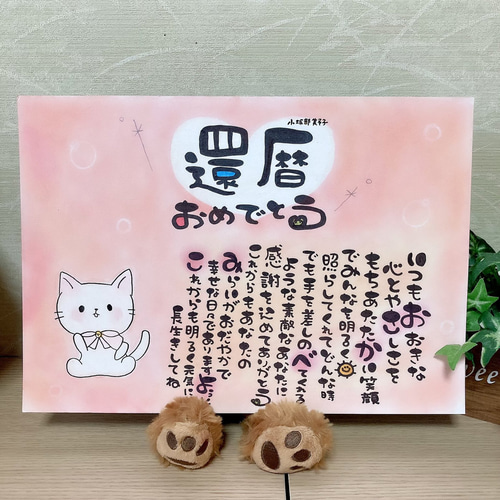 小坂部美子
還暦
おめでとう
いつもおおきな
心とやさしさを
もちあたたかい笑顔
でみんなを明るく
照らしてくれてどんな時
でも手を差しのべてくれる
ような素敵なあなたに
感謝を込めてありがとう
これからもあなたの
みらいがおだやかで
幸せな日々でありますよぅに
これからも明るく元気に
長生きしてね